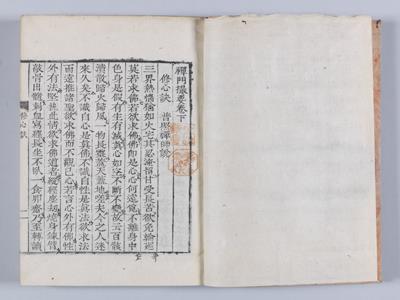 禪門撮要卷下
修心訣 普照禪師說
三界熱惱猶如火宅其忍淹留甘受長苦欲免輪廻
莫若求佛若欲求佛佛卽是心心何遠覓不離身中
色身是假有生有滅眞心如空不斷不變故云百骸
潰散歸火歸風一物長靈蓋天蓋地嗟夫今之人迷
來久矣不識自心是眞佛不識自性是眞法欲求法
而遠推諸聖欲求佛而不觀己心若言心外有佛性
外有法堅執此情欲求佛道者縱經塵劫燒身鍊臂
敲骨出髓刺血寫經長坐不臥一食卯齋乃至轉讀
修心訣 一